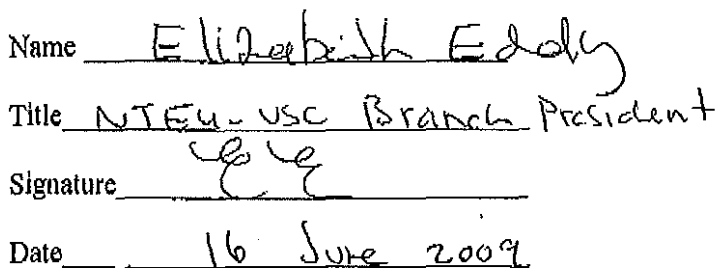 Name Elizabeth Eddy
Title NTEU-USC Branch President
Signature
Date 16 June 2009